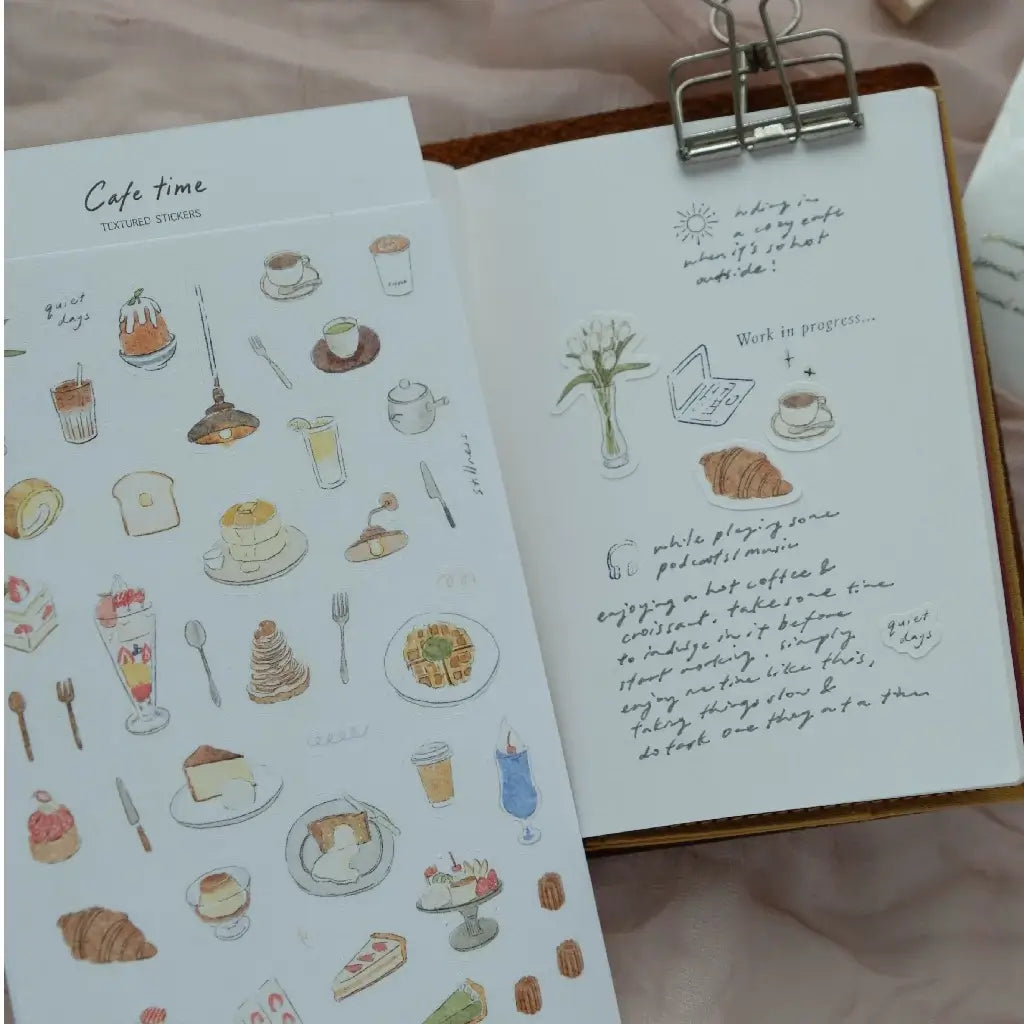 Cafe time
TEXTURED STICKERS
quiet
days
stillness
hiding in
a cozy cafe
when it's so hot
outside!
Work in progress...
while playing some
podcasts/music
enjoying a hot coffee &
croissant. take some time
to indulge in it before
start working. simply
enjoy me time like this,
taking things slow &
do task one thing at a time
quiet
days